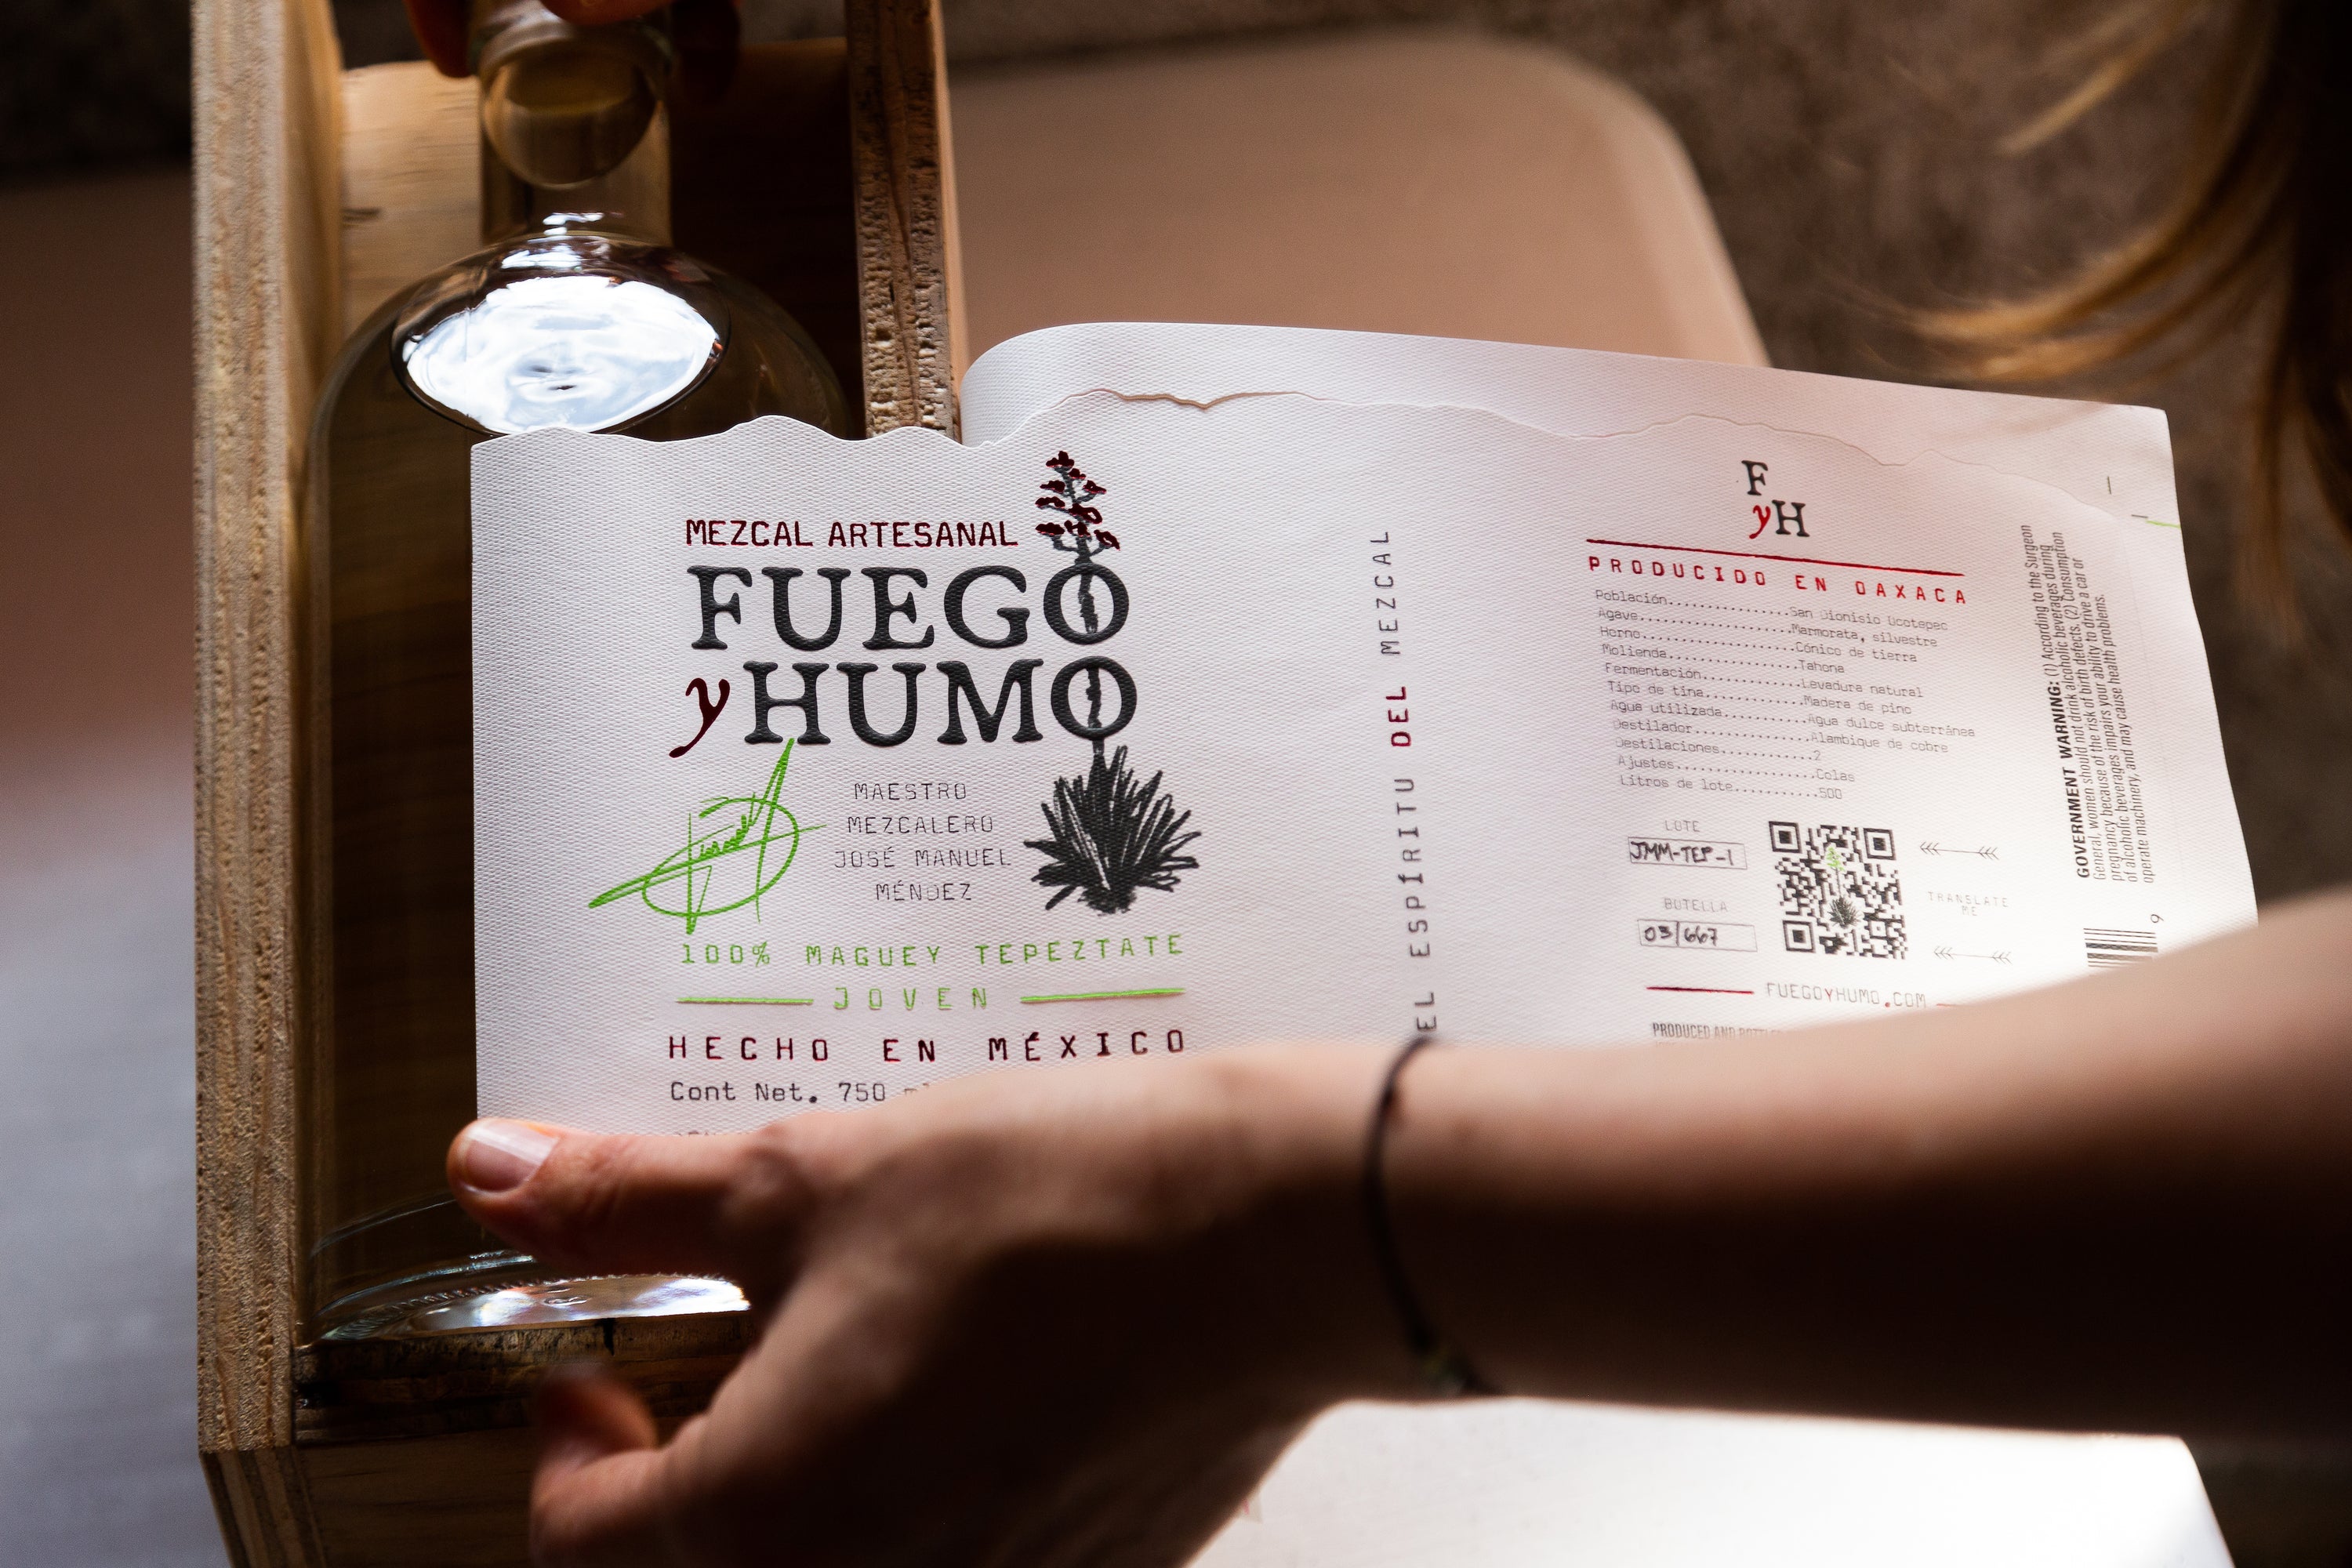 MEZCAL ARTESANAL
FUEGO
yHUMO
MAESTRO
MEZCALERO
JOSÉ MANUEL
MÉNDEZ
100% MAGUEY TEPEZTATE
JOVEN
HECHO EN MÉXICO
Cont Net. 750
EL ESPÍRITU DEL MEZCAL
F
yH
PRODUCIDO EN OAXACA
Población................San Dionisio Ocotepec
Agave....................Marmorata, silvestre
Horno....................Cónico de tierra
Molienda.................Tahona
Fermentación.............Levadura natural
Tipo de tina.............Madera de pino
Agua utilizada...........Agua dulce subterránea
Destilador...............Alambique de cobre
Destilaciones............2
Ajustes..................Colas
Litros de lote...........500
LOTE
JMM-TEP-1
BOTELLA
03/667
TRANSLATE
ME
FUEGOYHUMO.COM
PRODUCED AND
GOVERNMENT WARNING: (1) According to the Surgeon
General, women should not drink alcoholic beverages during
pregnancy because of the risk of birth defects. (2) Consumption
of alcoholic beverages impairs your ability to drive a car or
operate machinery, and may cause health problems.
9